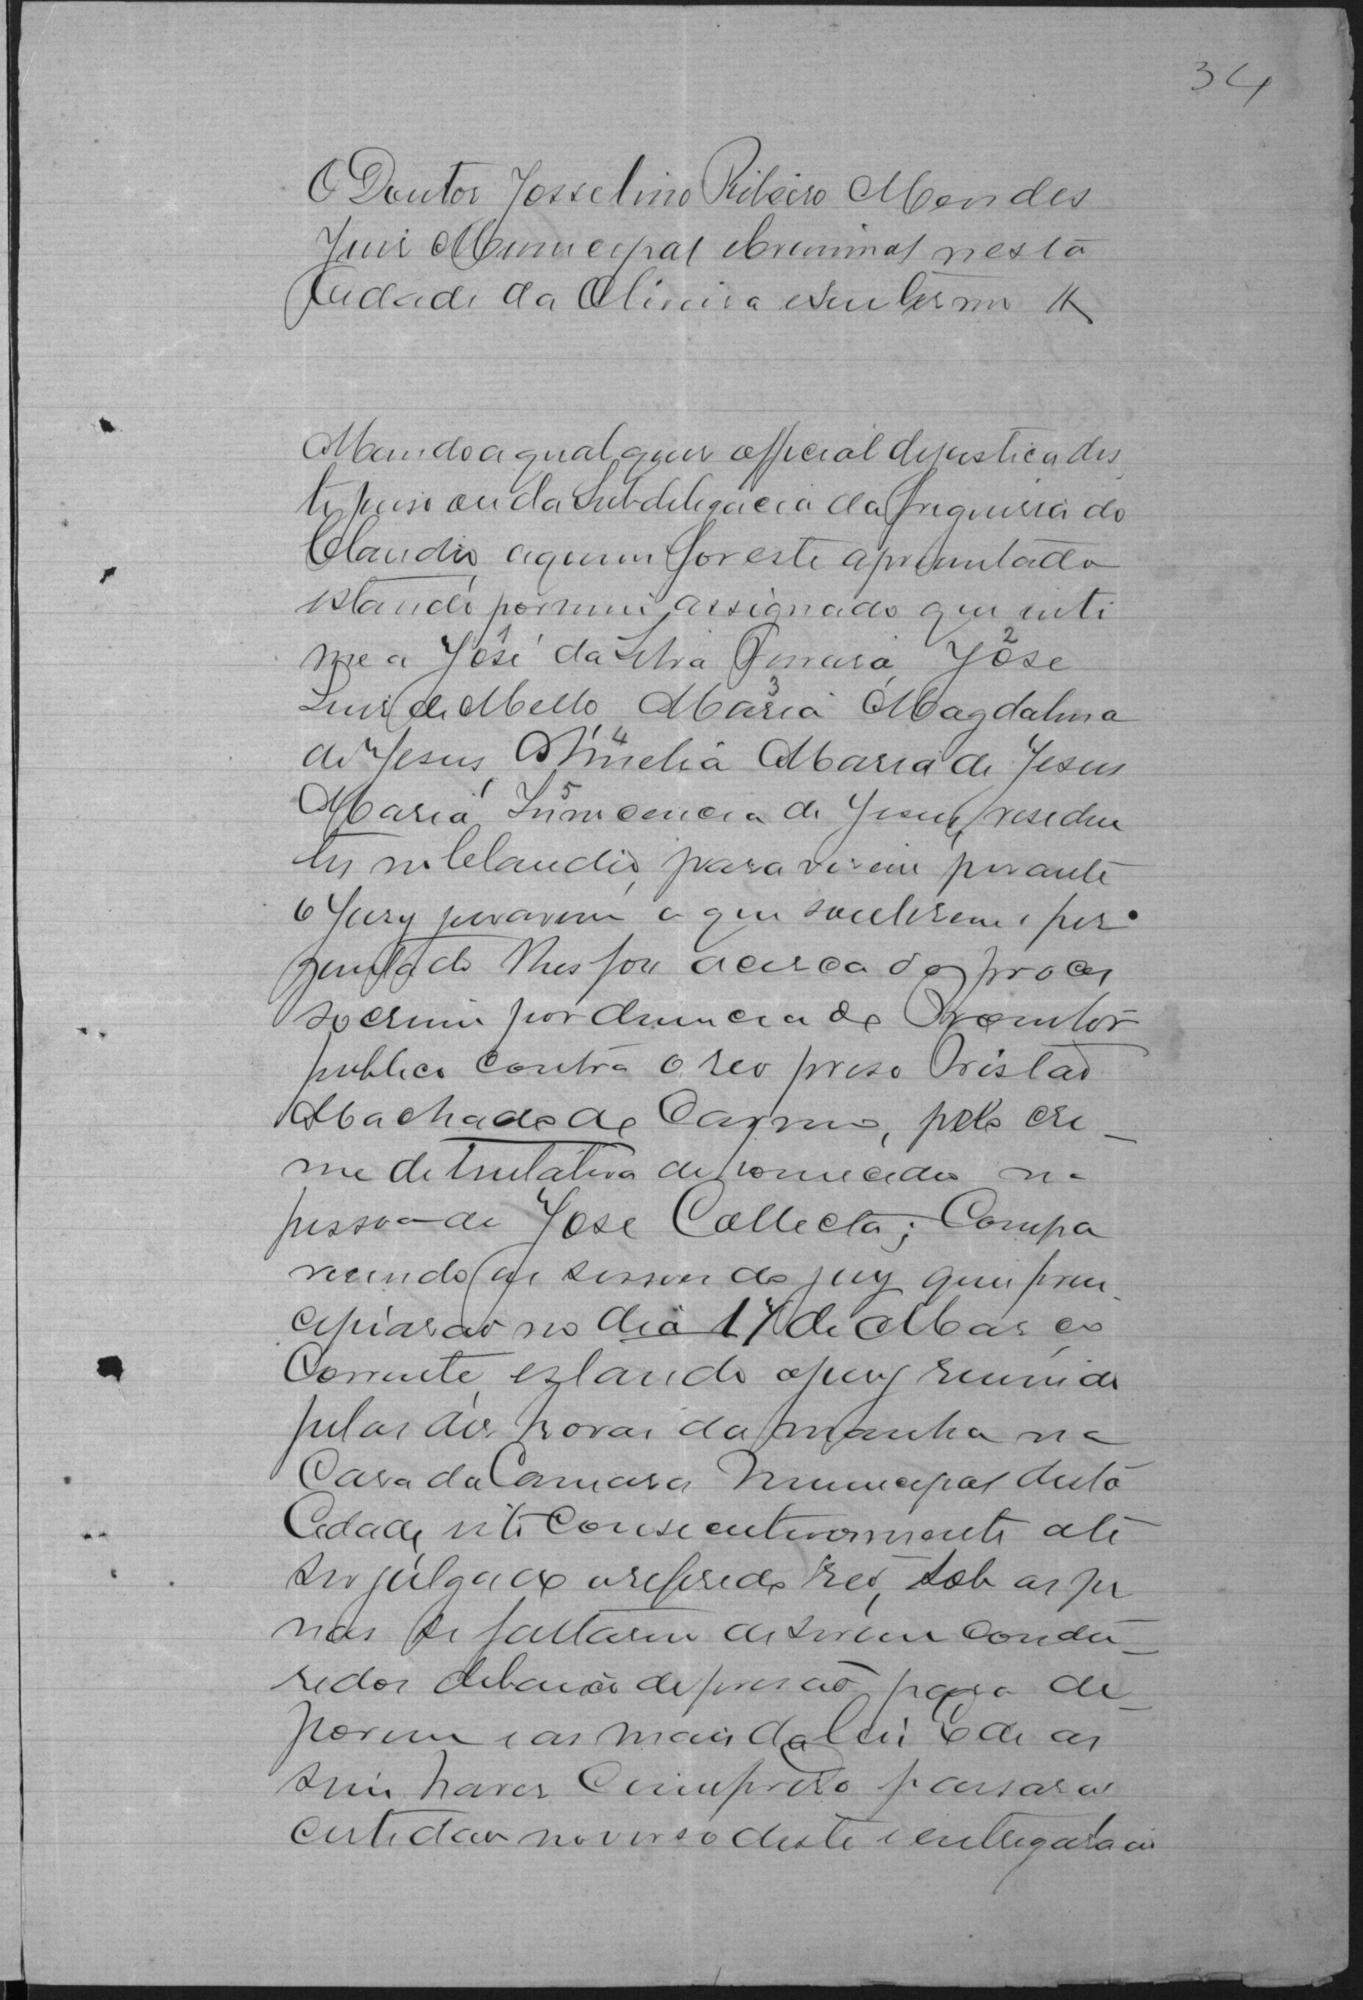 34
O Doutor Josselino Ribeiro Mendes
Juis Municipal e criminal nesta
Cidade da Oliveira e seu termo &
Mando a qualquer official de justica des
te juiso ou da Subdelegacia da freguisia do
Claudio, a quem for este apresentado
estando por mim assignado que inti
me a José da Silva Ferreira, José
Luis de Mello, Maria Magdalena
de Jesus, Amelia Maria de Jesus
Maria Innocencia de Jesus, residen
tes no Claudio, para virem perante
o Jury jurarem o que souberem e per
guntado lhes for acerca do proces
so crime por denuncia do Promotor
publico contra o reo preso Tristão
Machado de Carmo, pelo cri
me de tentativa de homicidio na
pessoa de José Collecta; Compa
recendo as sessoes do jury que prin
cipiarão no dia 17 de Março
Corrente, estando o jury reunido
pelas dés horas da manha na
Casa da Camara Municipal desta
Cidade, isto consecutivamente até
ser julgado o referido reo, sob as pe
nas se faltarem de serem condu
sidos debaixo de prisão para de
porem e as mais da lei E de as
sim haver cumprido passara
certidao no verso deste e entregara ao